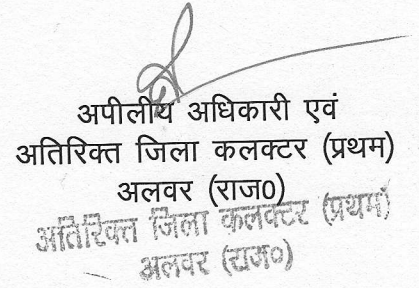 अपीलीय अधिकारी एवं
अतिरिक्त जिला कलक्टर (प्रथम)
अलवर (राज0)
अतिरिक्त जिला कलक्टर (प्रथम)
अलवर (राज०)